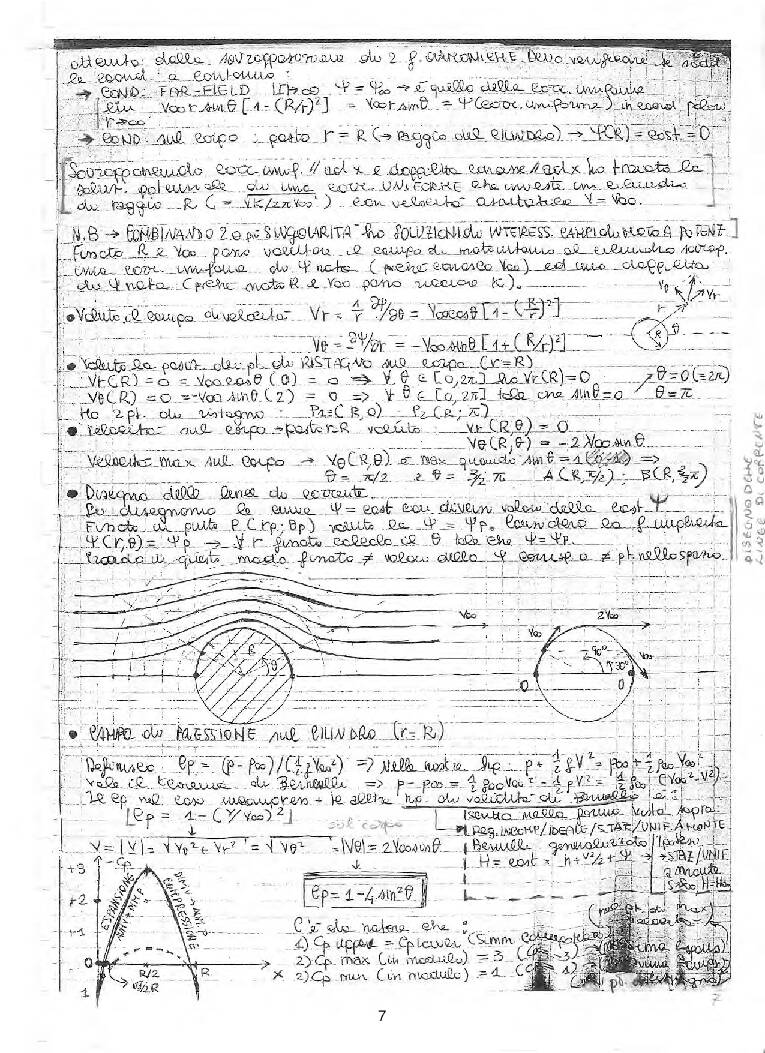 ottenuto dalla sovrapposizione di 2 f. ARMONICHE. Devo verificare se soddi
le cond. a contorno :
→ COND. FAR-FIELD ψ = ψ∞ → è quello della corr. uniforme
lim V∞ r sinθ [1-(R/r)²] = V∞ r sinθ = ψ (corr. uniforme) in coord polari
r→∞
→ COND. sul corpo : posto r = R (→ raggio del CILINDRO) → ψ(R) = cost = 0
Sovrapponendo corr. unif. // ad x e doppietta con asse // ad x ho trovato la
soluz. potenziale di una corr. UNIFORME che investe un cilindro
di raggio R (= √K/2πV∞) con velocità asintotica V = V∞.
N.B → COMBINANDO 2 o più SINGOLARITÀ ho SOLUZIONI di INTERESS. CAMPI di MOTO A POTENZ.
Fissato R e V∞ posso valutare il campo di moto intorno al cilindro sovrap.
una corr. uniforme di ψ nota (perché conosco V∞) ed una doppietta
di ψ nota (perché noto R e V∞ posso ricavare K).
• Valuto il campo di velocità Vr = 1/r ∂ψ/∂θ = V∞cosθ [1-(R/r)²]
Vθ = -∂ψ/∂r = -V∞ sinθ [1+(R/r)²]
Vθ Vr
r
R θ
• Valuto la posiz. dei pt. di RISTAGNO sul corpo (r=R)
Vr(R) = 0 = V∞ cosθ (0) = 0 ⇒ ∀ θ ∈ [0,2π] ho Vr(R)=0 θ=0 (=2π)
Vθ(R) = 0 = -V∞ sinθ (2) = 0 ⇒ ∀ θ ∈ [0,2π] tale che sinθ=0 θ=π
Ho 2 pt. di ristagno : P1=(R,0) P2(R;π)
• Velocità sul corpo → posto r=R valuto : Vr(R,θ) = 0
Vθ(R,θ) = -2 V∞ sinθ
Velocità max sul corpo → Vθ(R,θ) è max quando sinθ = 1 (o -1) ⇒
θ = π/2 e θ = 3/2 π A(R,π/2) ; B(R,3/2π)
• Disegno delle linee di corrente
Poi disegnamo le curve ψ = cost con diversi valori della cost. ψ
Fissato un punto P(rp,θp) valuto la ψ = ψp. Considero la f. implicita
ψ(r,θ) = ψp → ∀ r fissato calcolo il θ tale che ψ=ψp
in questo modo fissato ≠ valori della ψ corrisp a ≠ pt nello spazio
DISEGNO DELLE
LINEE DI CORRENTE
R θ
V∞ 2V∞
V∞ V∞
90° 30°
0 0
• CAMPO di PRESSIONE sul CILINDRO (r = R)
Definisco Cp = (p-p∞)/(½ρV∞²) ⇒ Nelle nostre hp p + ½ρV² = p∞ + ½ρ∞V∞²
vale il teorema di Bernoulli ⇒ p-p∞ = ½ρ∞V∞² - ½ρV² = ½ρ∞(V∞²-V²)
Il Cp nel caso incompress + le altre hp. di validità di Bernoulli è :
[Cp = 1-(V/V∞)²]
sul corpo
V = |V| = √Vθ²+Vr² = √Vθ² = |Vθ| = 2V∞sinθ
REG. INCOMP/IDEALE/STAZ/UNIF. A MONTE
Bernoulli generalizzato
H = cost = h+V²/2+ψ → STAZ/UNIF
a monte
Cp = 1-4 sin²θ
-Cp
+3
+2
+1
0
1
ESPANSIONE
COMPRESSIONE
R/2 R x
C'è da notare che :
1) Cp upper = Cp lower
2) Cp max (in modulo) = 3
2) Cp min (in modulo) = 1
7
7